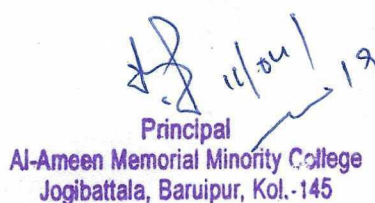 11/04/18
Principal
Al-Ameen Memorial Minority College
Jogibattala, Baruipur, Kol.-145